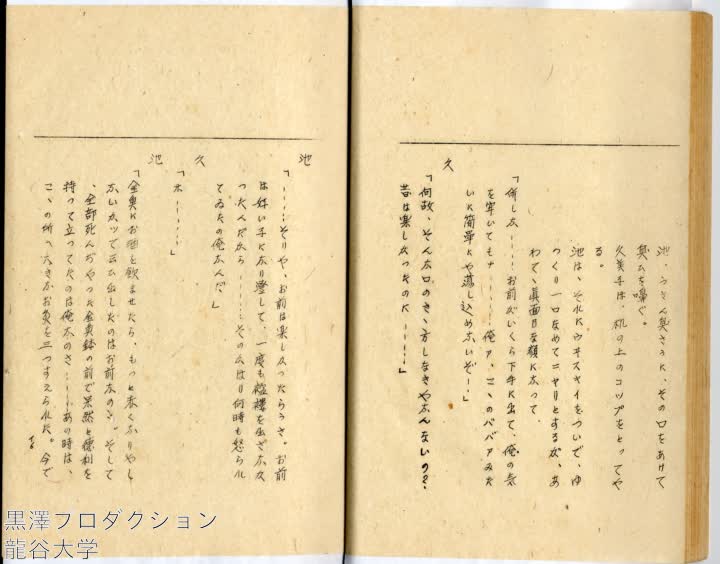 池、うさん臭さうに、その口をあけて
臭ひを嗅ぐ。
久美子は、机の上のコップをとってや
る。
池は、それにウヰスキイをついで、ゆ
つくり一口なめてニヤリとするが、あ
わてゝ真面目な顔に太って、
「併し太……お前がいくら下手に出て、俺の気
を窄いてもナ……俺ァ、こゝのババアみた
いに簡単にや蕩し込めないぞ！」
久
「何故、そん太口のきゝ方しなきや太んないの？
昔は楽しかつたのに……」
池
「……そりや、お前は楽しかつたらうさ。お前
は好い子に太り澄して、一度も襤褸を出さ太か
つたんだから……その公はり何時も怒られ
てゐたの俺太んだ」
久
「ホ……」
池
「金魚にお酒を飲ませたら、もっと赤く太りやし
太いかッて云ひ出したのはお前太のさ。そして
、全部死んぢやつた金魚鉢の前で呆然と徳利を
持って立ってたのは俺太のさ……あの時は、
こゝの所へ大きなお灸を三つすえられた。今で
黒澤プロダクション
龍谷大学